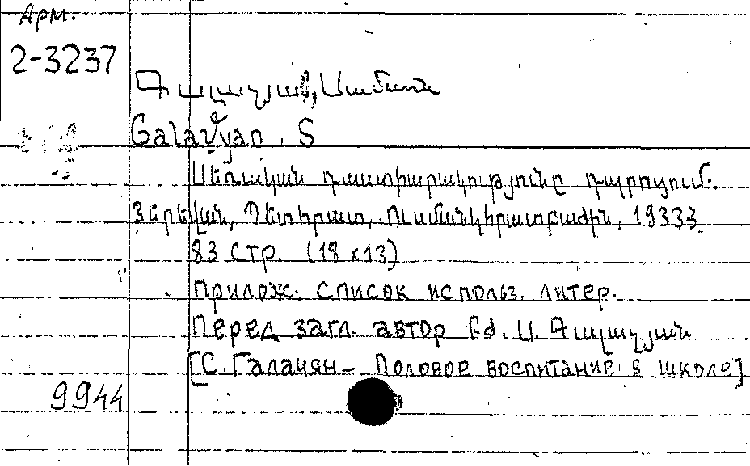 Арм.
2-3237
Գալաչյան, Սամսոն
Galačyan, S
Սեռական դաստիարակությունը դպրոցում.
Յերեվան, Պետհրատ, Ուսմանկհրատբաժին, 1933
83 стр. (18 x 13)
Прилож. список использ. литер.
Перед загл. автор Եժ. Ս. Գալաչյան
[С. Галачян – Половое воспитание в школе]
9944